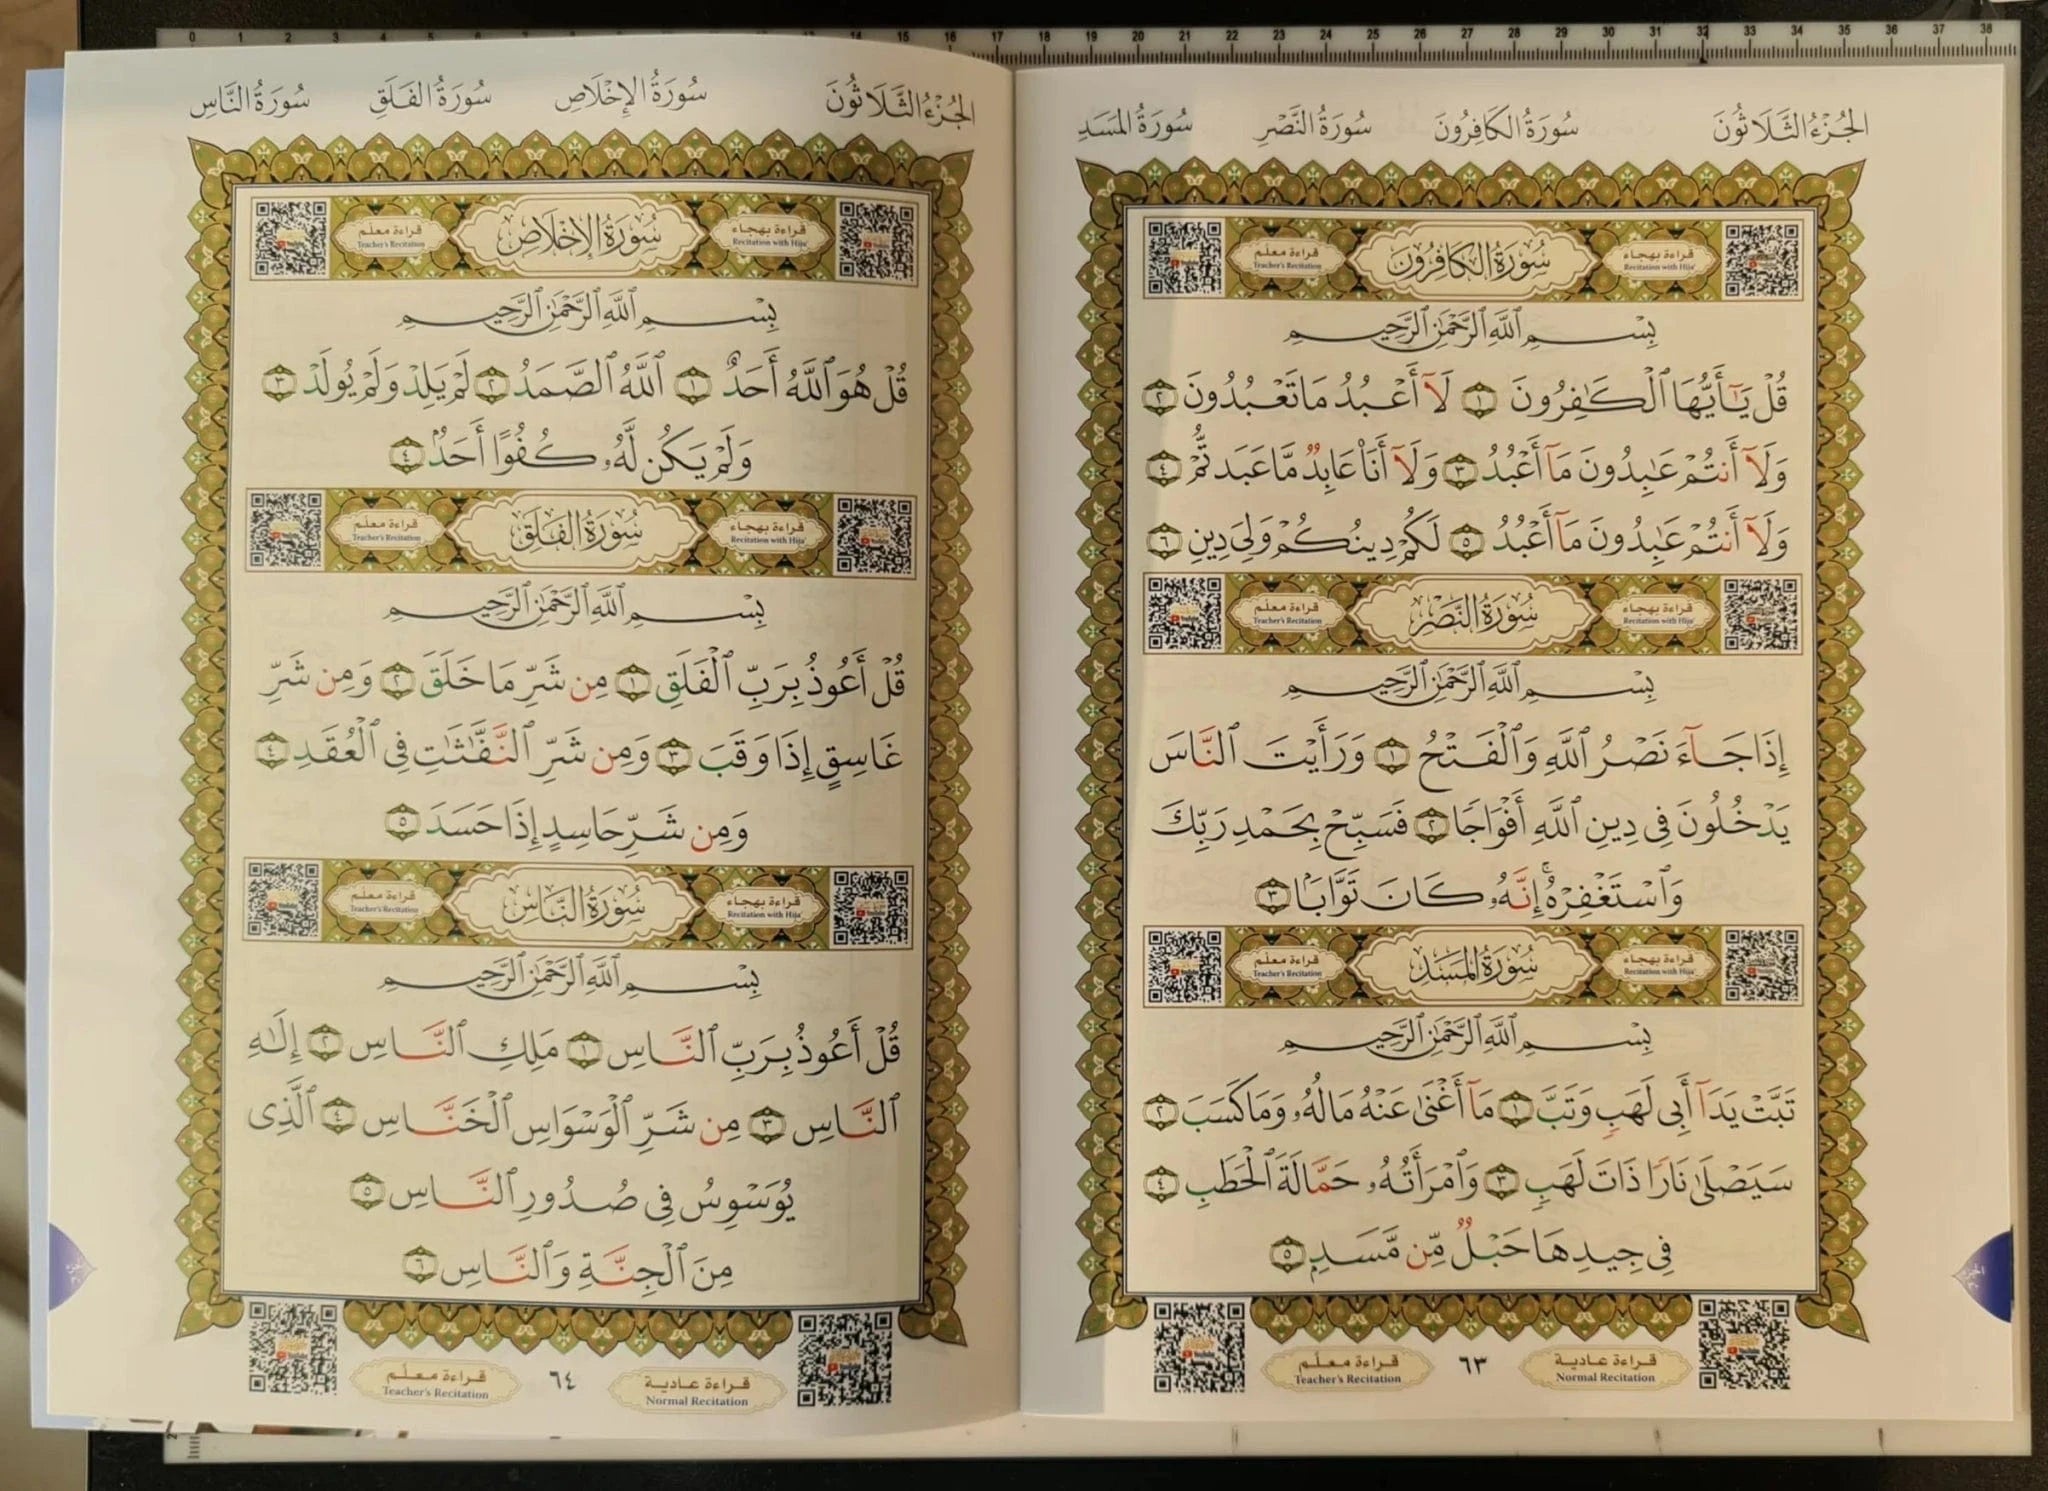 الجُزْءُ الثَّلَاثُونَ سُورَةُ الكَافِرُونَ سُورَةُ النَّصْرِ سُورَةُ المَسَدِ
قراءة بهجاء
Recitation with Hija'
سُورَةُ الكَافِرُونَ
قراءة معلّم
Teacher's Recitation
بِسْمِ ٱللَّهِ ٱلرَّحْمَٰنِ ٱلرَّحِيمِ
قُلْ يَـٰٓأَيُّهَا ٱلْكَـٰفِرُونَ ١ لَآ أَعْبُدُ مَا تَعْبُدُونَ ٢
وَلَآ أَنتُمْ عَـٰبِدُونَ مَآ أَعْبُدُ ٣ وَلَآ أَنَا۠ عَابِدٌ مَّا عَبَدتُّمْ ٤
وَلَآ أَنتُمْ عَـٰبِدُونَ مَآ أَعْبُدُ ٥ لَكُمْ دِينُكُمْ وَلِىَ دِينِ ٦
قراءة بهجاء
Recitation with Hija'
سُورَةُ النَّصْرِ
قراءة معلّم
Teacher's Recitation
بِسْمِ ٱللَّهِ ٱلرَّحْمَٰنِ ٱلرَّحِيمِ
إِذَا جَآءَ نَصْرُ ٱللَّهِ وَٱلْفَتْحُ ١ وَرَأَيْتَ ٱلنَّاسَ
يَدْخُلُونَ فِى دِينِ ٱللَّهِ أَفْوَاجًا ٢ فَسَبِّحْ بِحَمْدِ رَبِّكَ
وَٱسْتَغْفِرْهُ ۚ إِنَّهُۥ كَانَ تَوَّابًۢا ٣
قراءة بهجاء
Recitation with Hija'
سُورَةُ المَسَدِ
قراءة معلّم
Teacher's Recitation
بِسْمِ ٱللَّهِ ٱلرَّحْمَٰنِ ٱلرَّحِيمِ
تَبَّتْ يَدَآ أَبِى لَهَبٍ وَتَبَّ ١ مَآ أَغْنَىٰ عَنْهُ مَالُهُۥ وَمَا كَسَبَ ٢
سَيَصْلَىٰ نَارًا ذَاتَ لَهَبٍ ٣ وَٱمْرَأَتُهُۥ حَمَّالَةَ ٱلْحَطَبِ ٤
فِى جِيدِهَا حَبْلٌ مِّن مَّسَدٍۭ ٥
قراءة عادية
Normal Recitation
٦٣
قراءة معلّم
Teacher's Recitation
الجُزْءُ الثَّلَاثُونَ سُورَةُ الإِخْلَاصِ سُورَةُ الفَلَقِ سُورَةُ النَّاسِ
قراءة بهجاء
Recitation with Hija'
سُورَةُ الإِخْلَاصِ
قراءة معلّم
Teacher's Recitation
بِسْمِ ٱللَّهِ ٱلرَّحْمَٰنِ ٱلرَّحِيمِ
قُلْ هُوَ ٱللَّهُ أَحَدٌ ١ ٱللَّهُ ٱلصَّمَدُ ٢ لَمْ يَلِدْ وَلَمْ يُولَدْ ٣
وَلَمْ يَكُن لَّهُۥ كُفُوًا أَحَدٌۢ ٤
قراءة بهجاء
Recitation with Hija'
سُورَةُ الفَلَقِ
قراءة معلّم
Teacher's Recitation
بِسْمِ ٱللَّهِ ٱلرَّحْمَٰنِ ٱلرَّحِيمِ
قُلْ أَعُوذُ بِرَبِّ ٱلْفَلَقِ ١ مِن شَرِّ مَا خَلَقَ ٢ وَمِن شَرِّ
غَاسِقٍ إِذَا وَقَبَ ٣ وَمِن شَرِّ ٱلنَّفَّـٰثَـٰتِ فِى ٱلْعُقَدِ ٤
وَمِن شَرِّ حَاسِدٍ إِذَا حَسَدَ ٥
قراءة بهجاء
Recitation with Hija'
سُورَةُ النَّاسِ
قراءة معلّم
Teacher's Recitation
بِسْمِ ٱللَّهِ ٱلرَّحْمَٰنِ ٱلرَّحِيمِ
قُلْ أَعُوذُ بِرَبِّ ٱلنَّاسِ ١ مَلِكِ ٱلنَّاسِ ٢ إِلَـٰهِ
ٱلنَّاسِ ٣ مِن شَرِّ ٱلْوَسْوَاسِ ٱلْخَنَّاسِ ٤ ٱلَّذِى
يُوَسْوِسُ فِى صُدُورِ ٱلنَّاسِ ٥
مِنَ ٱلْجِنَّةِ وَٱلنَّاسِ ٦
قراءة عادية
Normal Recitation
٦٤
قراءة معلّم
Teacher's Recitation